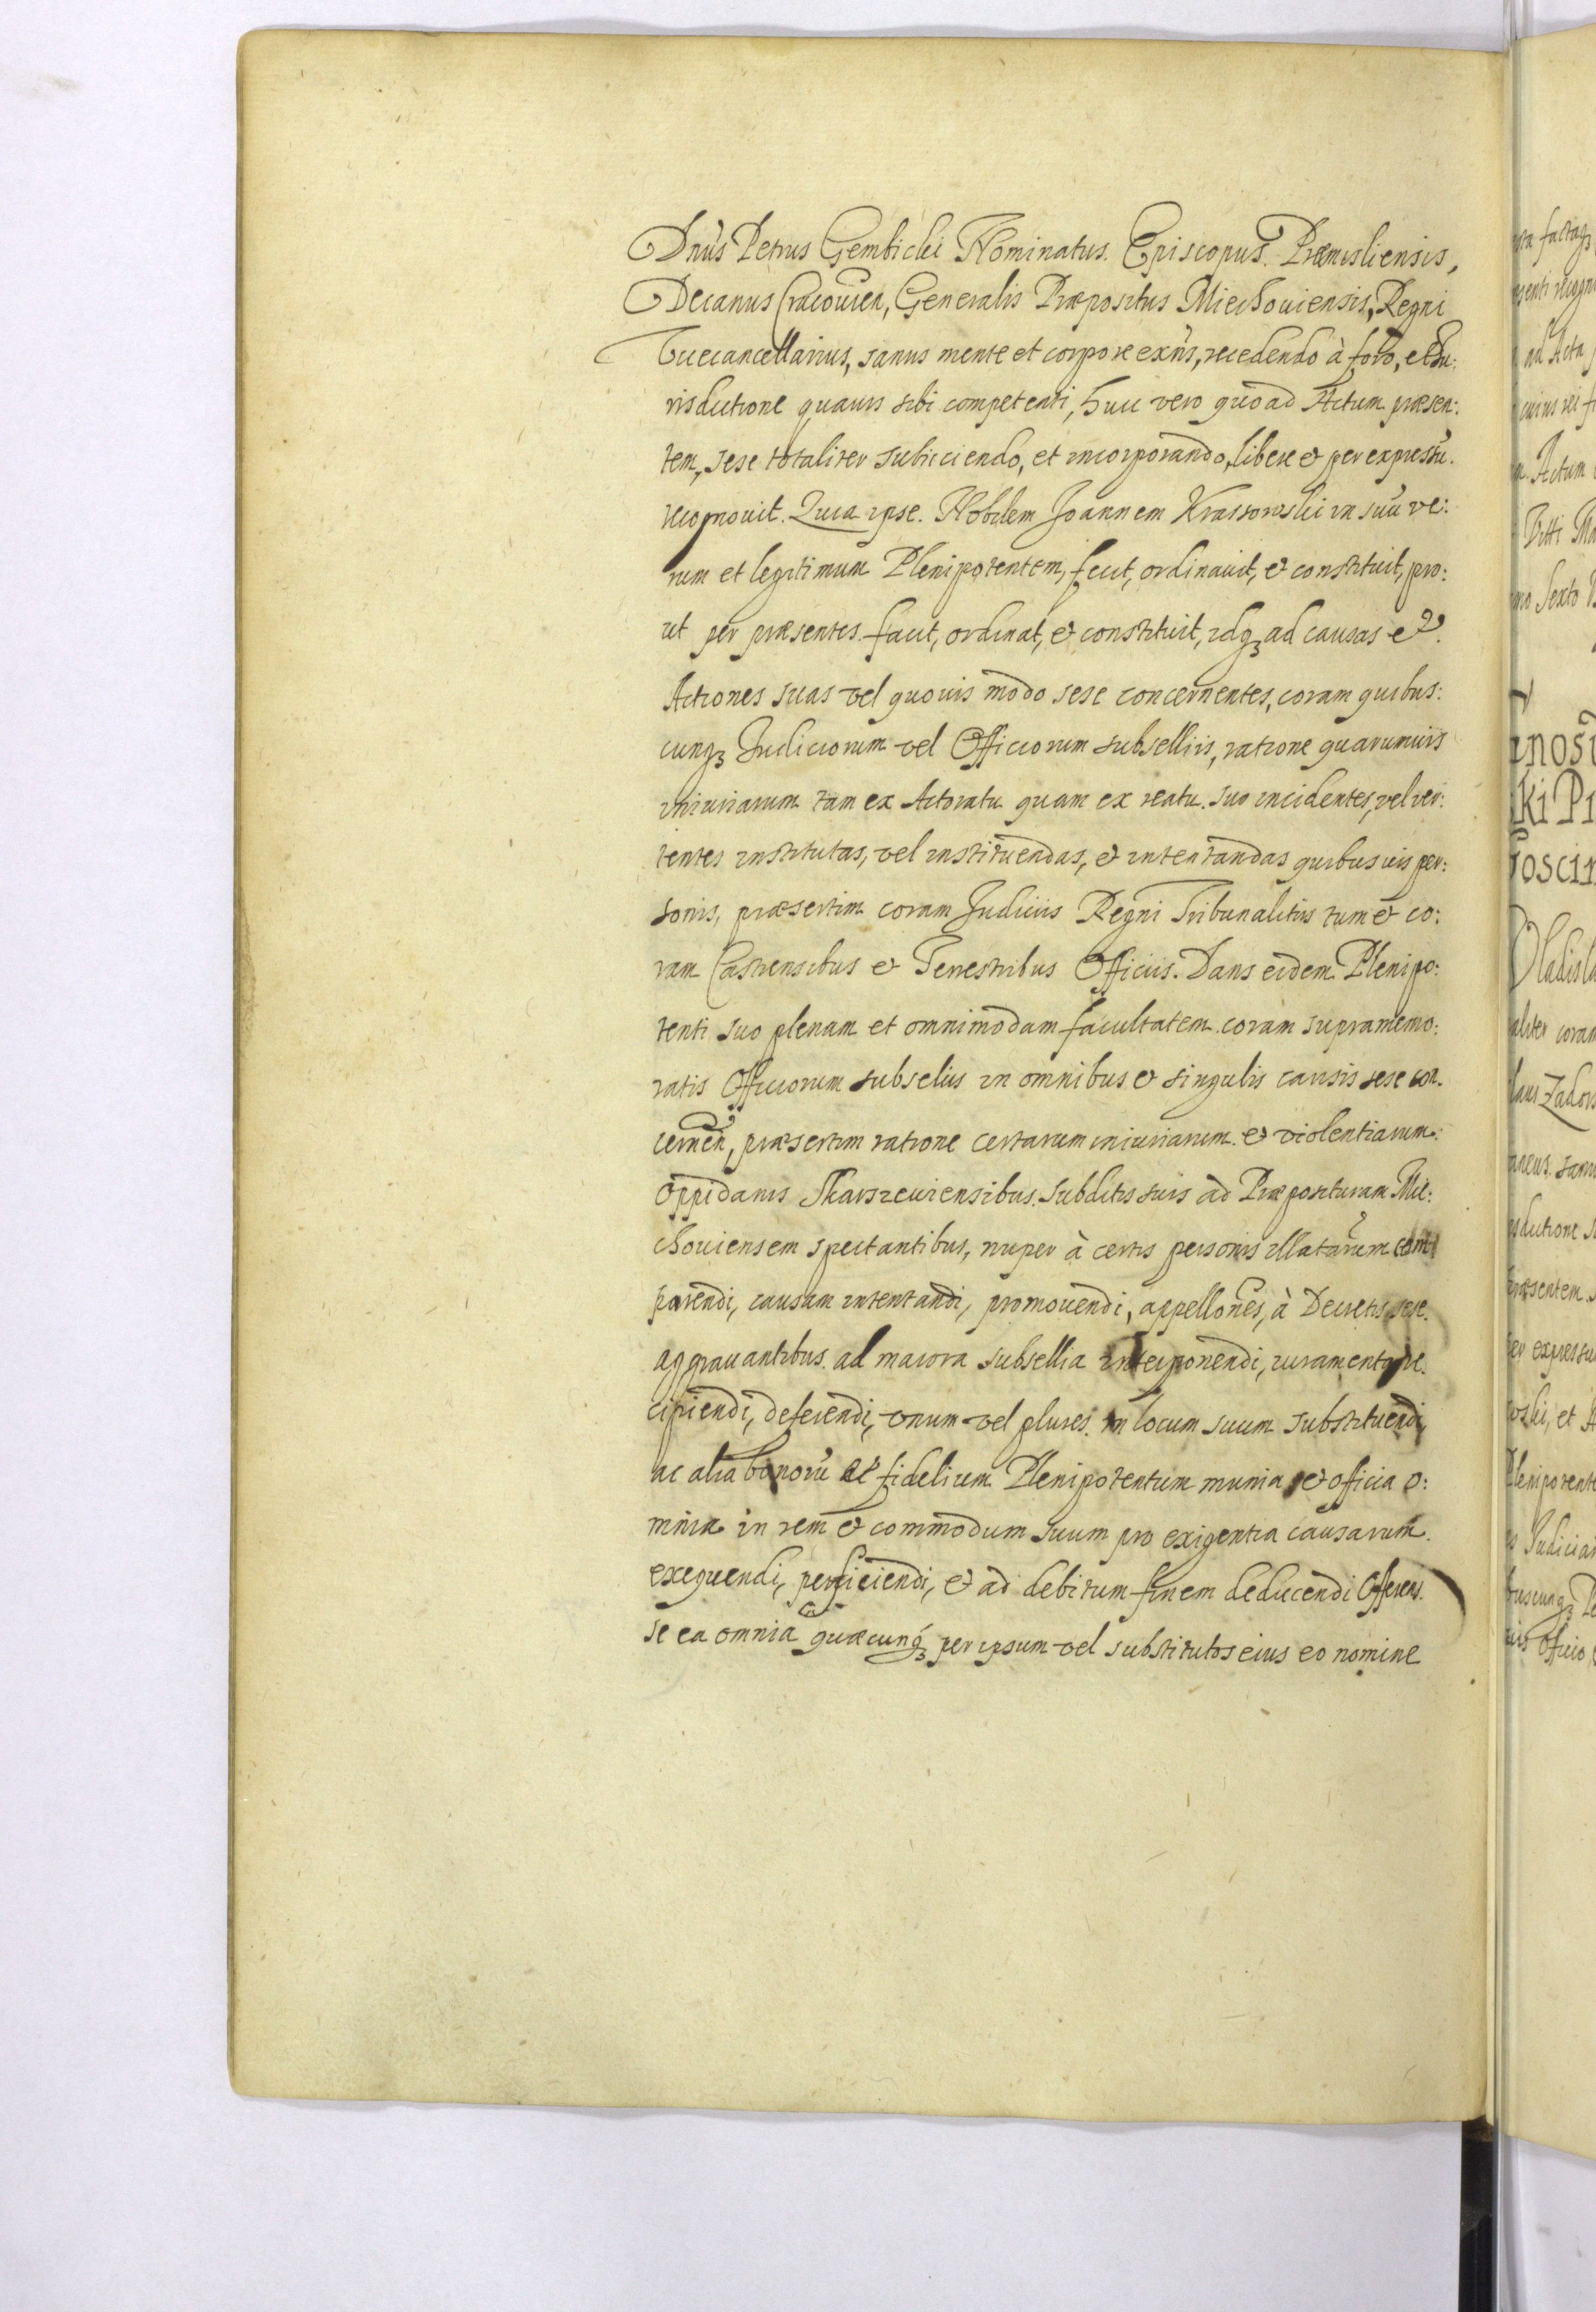 Dnus Petrus Gembicki Nominatus. Episcopus. Præmisliensis,
Decanus Cracouien, Generalis Præpositus Miechouiensis, Regni
Vicecancellarius, sanus mente et corpore exns, recedendo à foro, et Iu:
risdictione quauis sibi competenti, huic vero quoad Actum præsen:
tem, sese totaliter subiiciendo, et incorporando, libere & per expressu.
recognouit. Quia ipse. Nobilem Joannem Krassowski in suu ve:
rum et legitimum Plenipotentem, fecit, ordinauit, & constituit, pro:
ut per præsentes. facit, ordinat, & constituit, idq3 ad causas et
Actiones suas vel quouis modo sese concernentes, coram quibus:
cunq3 Iudiciorum vel Officiorum subselliis, ratione quarumuis
iniuriarum tam ex Actoratu quam ex reatu. suo incidentes, vel ver:
tentes institutas, vel instituendas, & intentandas quibusuis per:
sonis, præsertim coram Iudiciis Regni Tribunalitiis tum & co:
ram Castrensibus & Terrestribus Officiis. Dans eidem Plenipo:
tenti suo plenam et omnimodam facultatem. coram supramemo:
ratis Officiorum subseliis in omnibus & singulis causis sese con.
cernen, præsertim ratione certarum iniuriarum. & violentiarum.
Oppidanis Skarszeuiensibus. Subditis suis ad Præposituram Mie:
chouiensem spectantibus, nuper à certis personis illatarum com
parendi, causam intentandi, promouendi, appellones, à Decretis sese.
aggrauantibus. ad maiora subsellia interponendi, iuramenta re.
cipiendi, deferendi, vnum vel plures. in locum suum substituendi,
ac alia bonoru ac fidelium Plenipotentum munia & officia o:
mnia in rem & commodum suum pro exigentia causarum.
exequendi, perficiendi, & ad debitum finem deducendi Offerens.
se ea omnia quæcunq3 per ipsum vel substitutos eius eo nomine